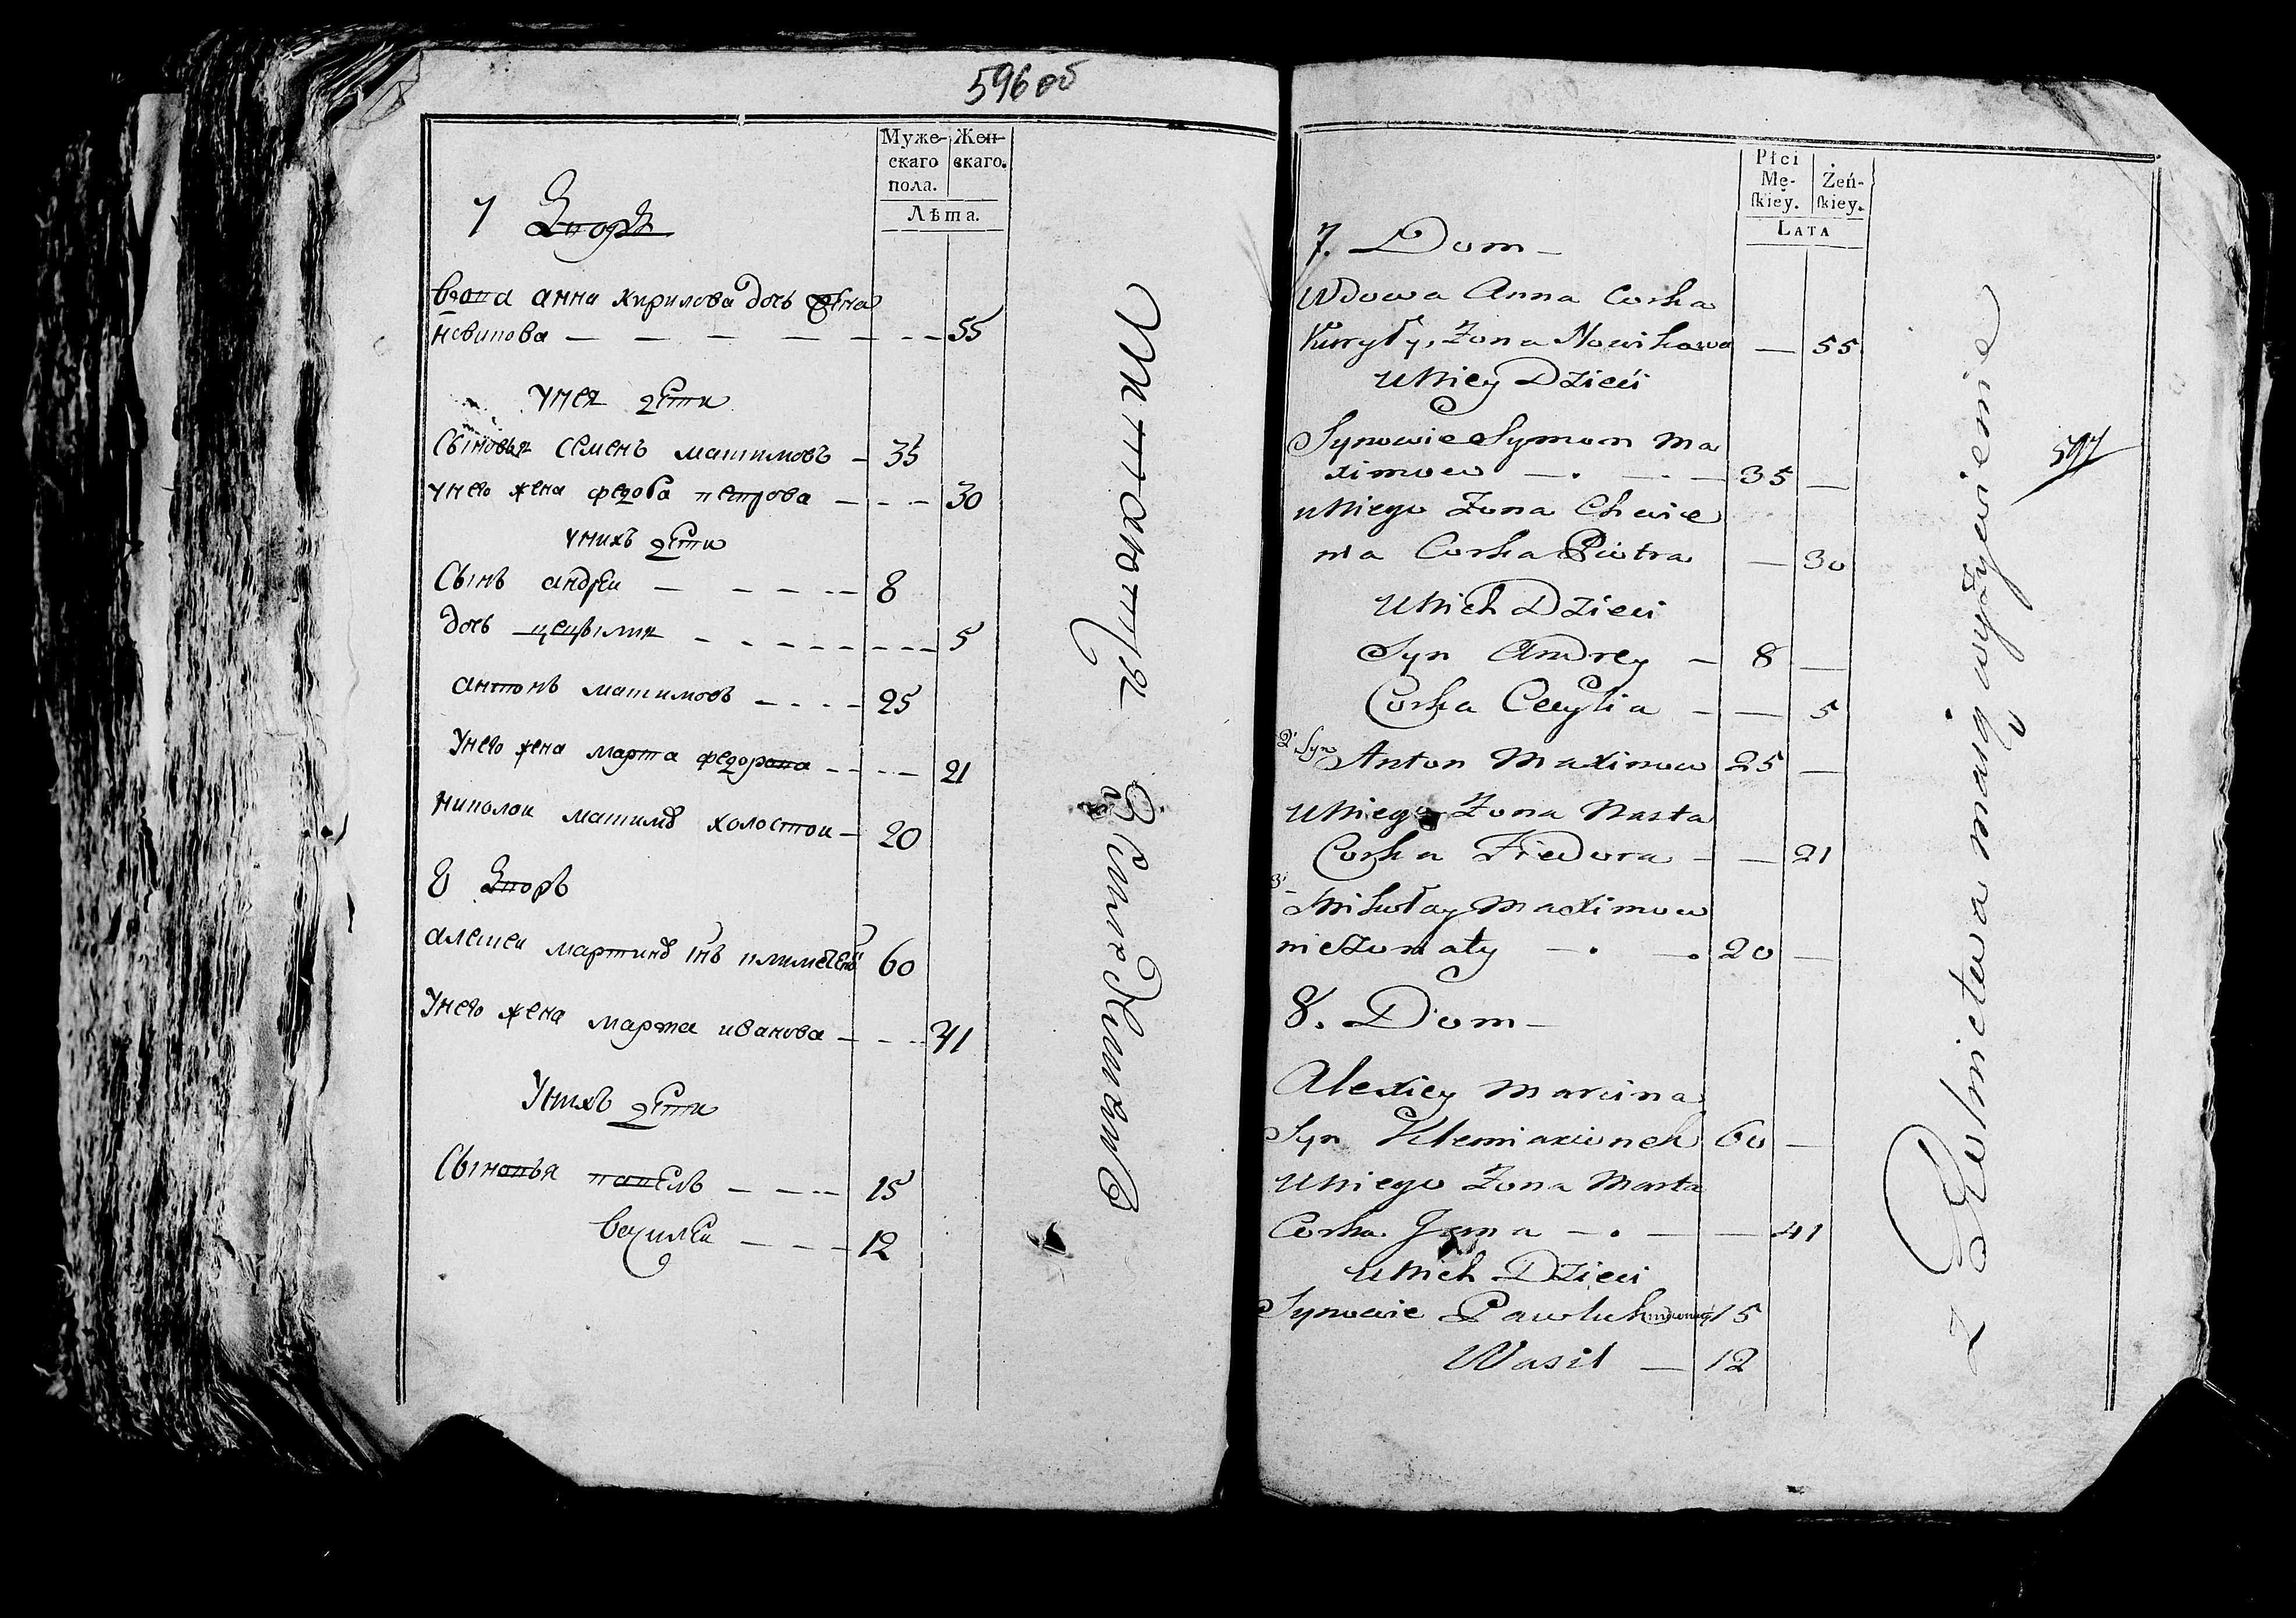 596 об
Муже-
скаго
пола.
Жен-
скаго.
Лѣта.
7 Дворъ
Вдова анна кирилова дочь жена
новикова — — — — — 55
У нея дети
Сыновья семенъ максимовъ — 35
у него жена федора петрова — — — 30
у нихъ дети
Сынъ андреи — — — — 8
дочь цецылия — — — — 5
антонъ максимовъ — — — 25
У него жена марта федорова — — — 21
николаи максимовъ холостои — 20
8 Дворъ
алексеи мартиновъ сынъ 60
У него жена марта иванова — — — 41
У нихъ дети
Сыновья павелъ — — — 15
василеи — — — 12
Питаются Землепашествомъ
Płci
Mę-
ſkiey.
Żeń-
ſkiey.
Lata
7. Dom —
Wdowa Anna Corka
Kuryły, Żona Nowikowa — 55
U Niey Dzieci
Synowie Symon Ma
ximow — . — . — 35 —
u Niego Żona Chwie
nia Corka Piotra — 30
U Nich Dzieci
Syn Andrey — 8 —
Corka Cecylia — — 5
2. Syn Anton Maximow 25 —
U Niego Żona Nasta
Corka Fiedora — — 21
3. Mikołay Maximow
nieżonaty — . — . 20 —
8. Dom —
Alexiey Marcina
Syn Klemiaxionek 60 —
U Niego Żona Marta
Corka Jana — . — — 41
U Nich Dzieci
Synowie Pawluk 15
Wasil — 12
z Rolnictwa mają wyżywienie
597